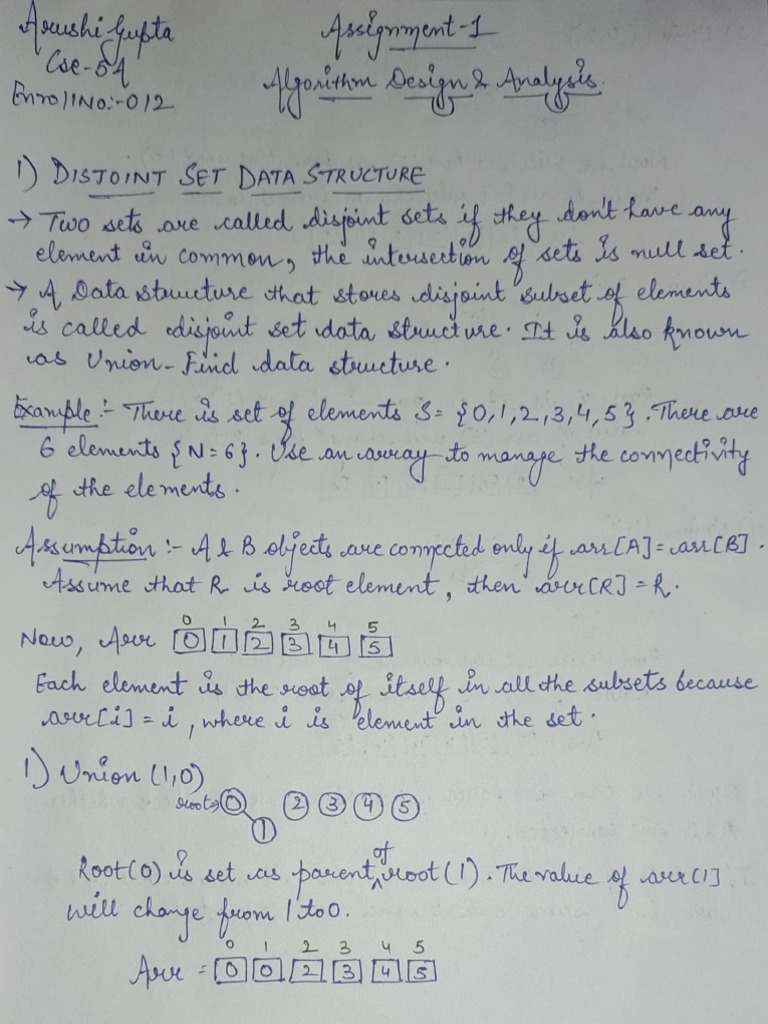 Arushi Gupta
Cse-5A
Enroll No:-012
Assignment-1
Algorithm Design & Analysis.
1) DISJOINT SET DATA STRUCTURE
→ Two sets are called disjoint sets if they don't have any
element in common, the intersection of sets is null set.
→ A Data structure that stores disjoint subset of elements
is called disjoint set data structure. It is also known
as Union-Find data structure.
Example:- There is set of elements S= {0,1,2,3,4,5}. There are
6 elements {N=6}. Use an array to manage the connectivity
of the elements.
Assumption:- A & B objects are connected only if arr[A]=arr[B].
Assume that R is root element, then arr[R]=R.
0 1 2 3 4 5
Now, Arr 0 1 2 3 4 5
Each element is the root of itself in all the subsets because
arr[i]=i, where i is element in the set.
1) Union (1,0)
root→ 0 2 3 4 5
1
Root(0) is set as parent of root(1). The value of arr[1]
will change from 1 to 0.
0 1 2 3 4 5
Arr = 0 0 2 3 4 5